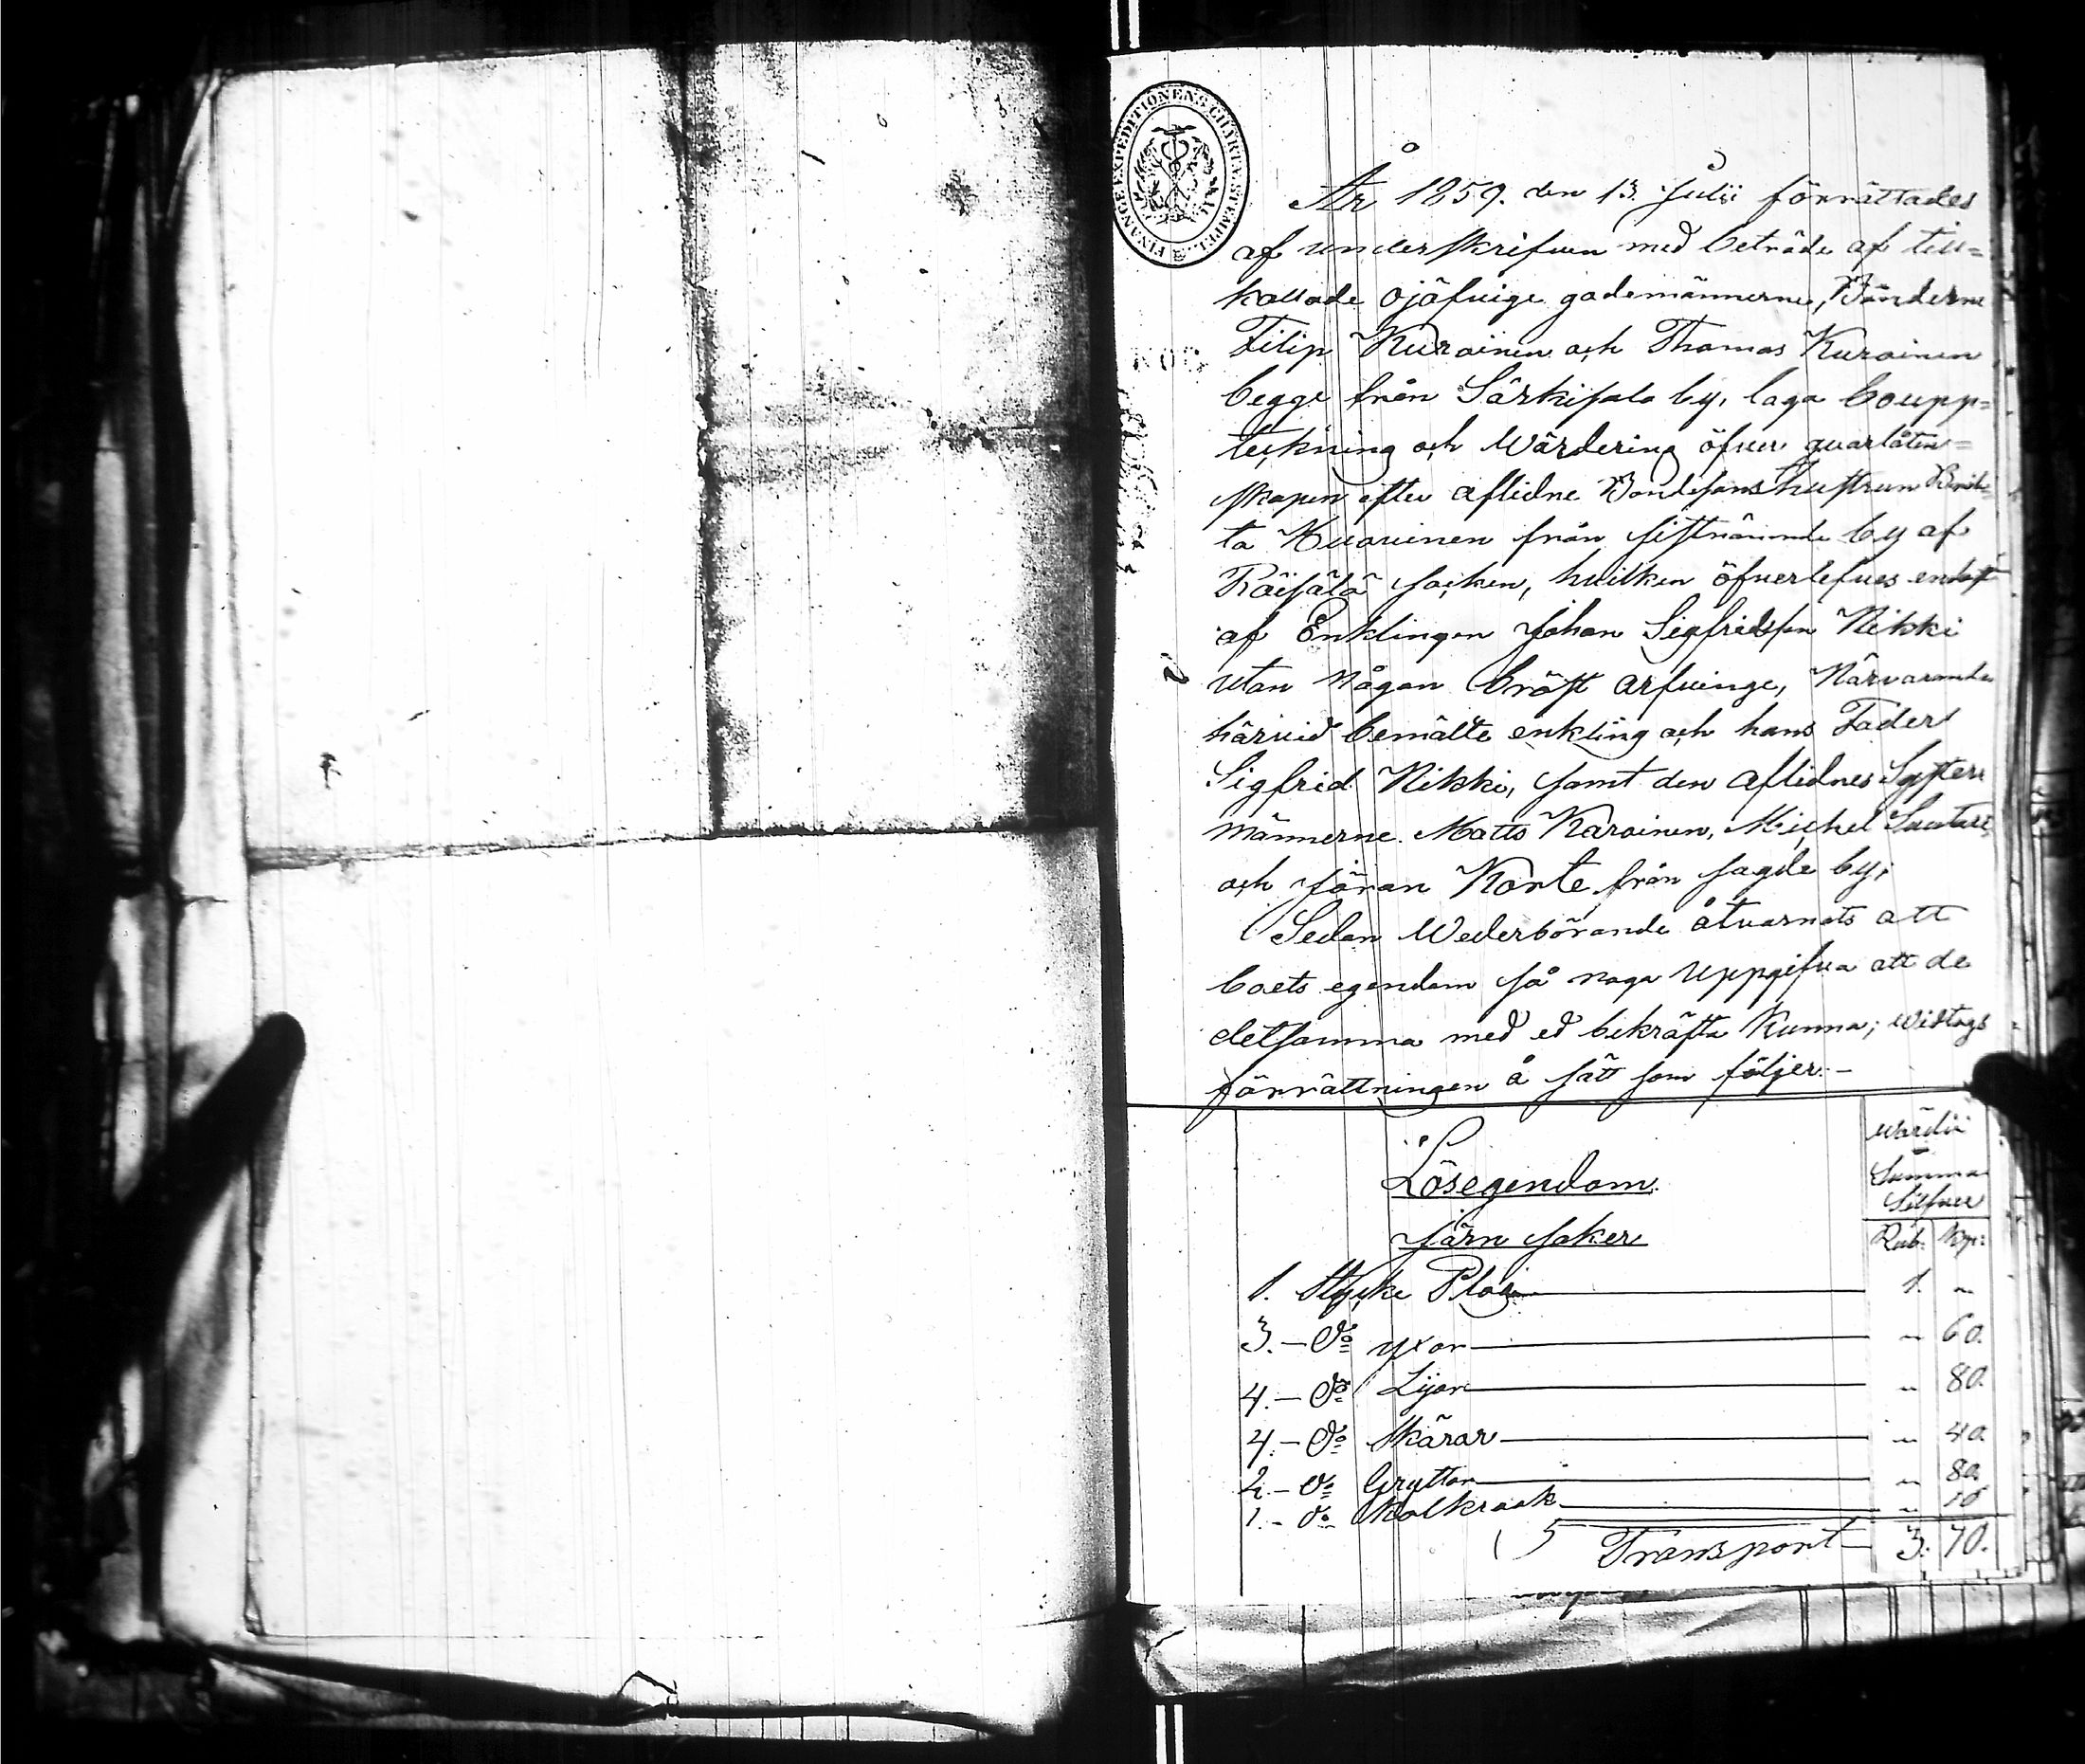 FINANCE EXPEDITIONENS CHARTÆ STEMPEL
År 1859. den 13. Julii förrättades
af underskrifven med beträde af till=
kallade ojäfvige godemännerne, Bönderne
Filip Kuroinen och Thomas Kuroinen
begge från Särkisalo by, laga boupp=
teckning och Wärdering öfver qvarlåten=
skapen efter aflidne Bondesons hustrun
ta Kuroinen från sistnämnde by af
Räisälä socken, hvilken öfverlefves endast
af Enklingen Johan Sigfridsson Nikki
utan någon bröst arfvinge, Närvarande
härvid bemälte enkling och hans Fader
Sigfrid Nikki, samt den aflidnes Syster
männerne Matts Karoinen, Michel
och Jöran Korte från sagde by;
Sedan Wederbörande åtvarnats att
boets egendom så noga Uppgifva att de
detsamma med ed bekräfta Kunna; widtogs
förrättningen å sätt som följer:-
wärdie
Summa
Silfver
Lösegendom.
Rub. Kop:
Järn saker
1. Stycke Plog 1. "
3.- Do yxor " 60.
4.- Do Lijor " 80.
4.- Do Skäror " 40.
2.- Do Gryttor " 80.
1.- Do " 10
Transport 3. 70.